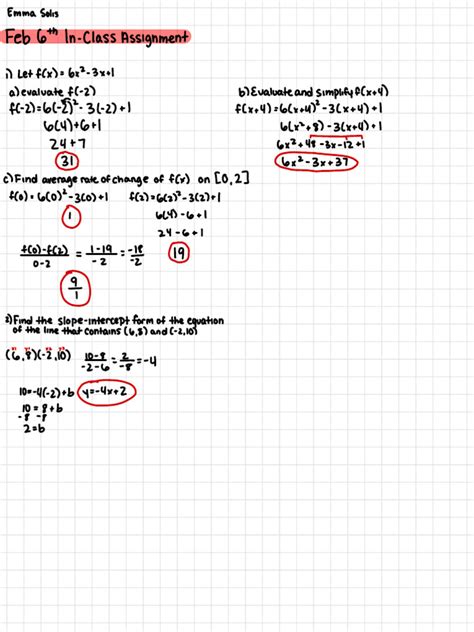 Emma Solis
Feb 6th In-Class Assignment
1) Let f(x) = 6x²-3x+1
a) evaluate f(-2)
f(-2)=6(-2)²-3(-2)+1
6(4)+6+1
24+7
31
b) Evaluate and simplify f(x+4)
f(x+4)=6(x+4)²-3(x+4)+1
6(x²+8)-3(x+4)+1
6x²+48-3x-12+1
6x²-3x+37
c) Find average rate of change of f(x) on [0,2]
f(0)=6(0)²-3(0)+1
1
f(2)=6(2)²-3(2)+1
6(4)-6+1
24-6+1
19
f(0)-f(2)/0-2 = 1-19/-2 = -18/-2
9/1
2) Find the slope-intercept form of the equation
of the line that contains (6,8) and (-2,10)
(6,8)(-2,10)
10-8/-2-6 = 2/-8 = -4
10=-4(-2)+b
y=-4x+2
10=8+b
-8 -8
2=b